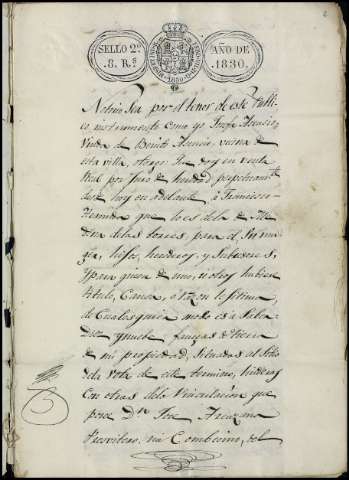 SELLO 2º
8. Rs
AÑO DE
1830.
Notorio sea por el tenor de este Publi
co instrumento como yo Josefa
Viuda de Benito Asencio, vecina de
esta villa, otorgo que doy en venta
Real por juro de heredad perpetuamte
desde hoy en adelante, a Francisco
que lo es de la de Me
dina de las torres, para el, su mu
ger, hijos, herederos, y subcesores,
y para quien de uno, u otros hubiere
titulo, Causa, o razon lejitima,
de Cualesquiera modo es a saber
Diez y nueve fanegas de tierra
de mi propiedad, situadas al sitio
del de este termino, linderos
con otras de la Vinculacion que
posee Dn Jose
Presvitero, su Combecino, del